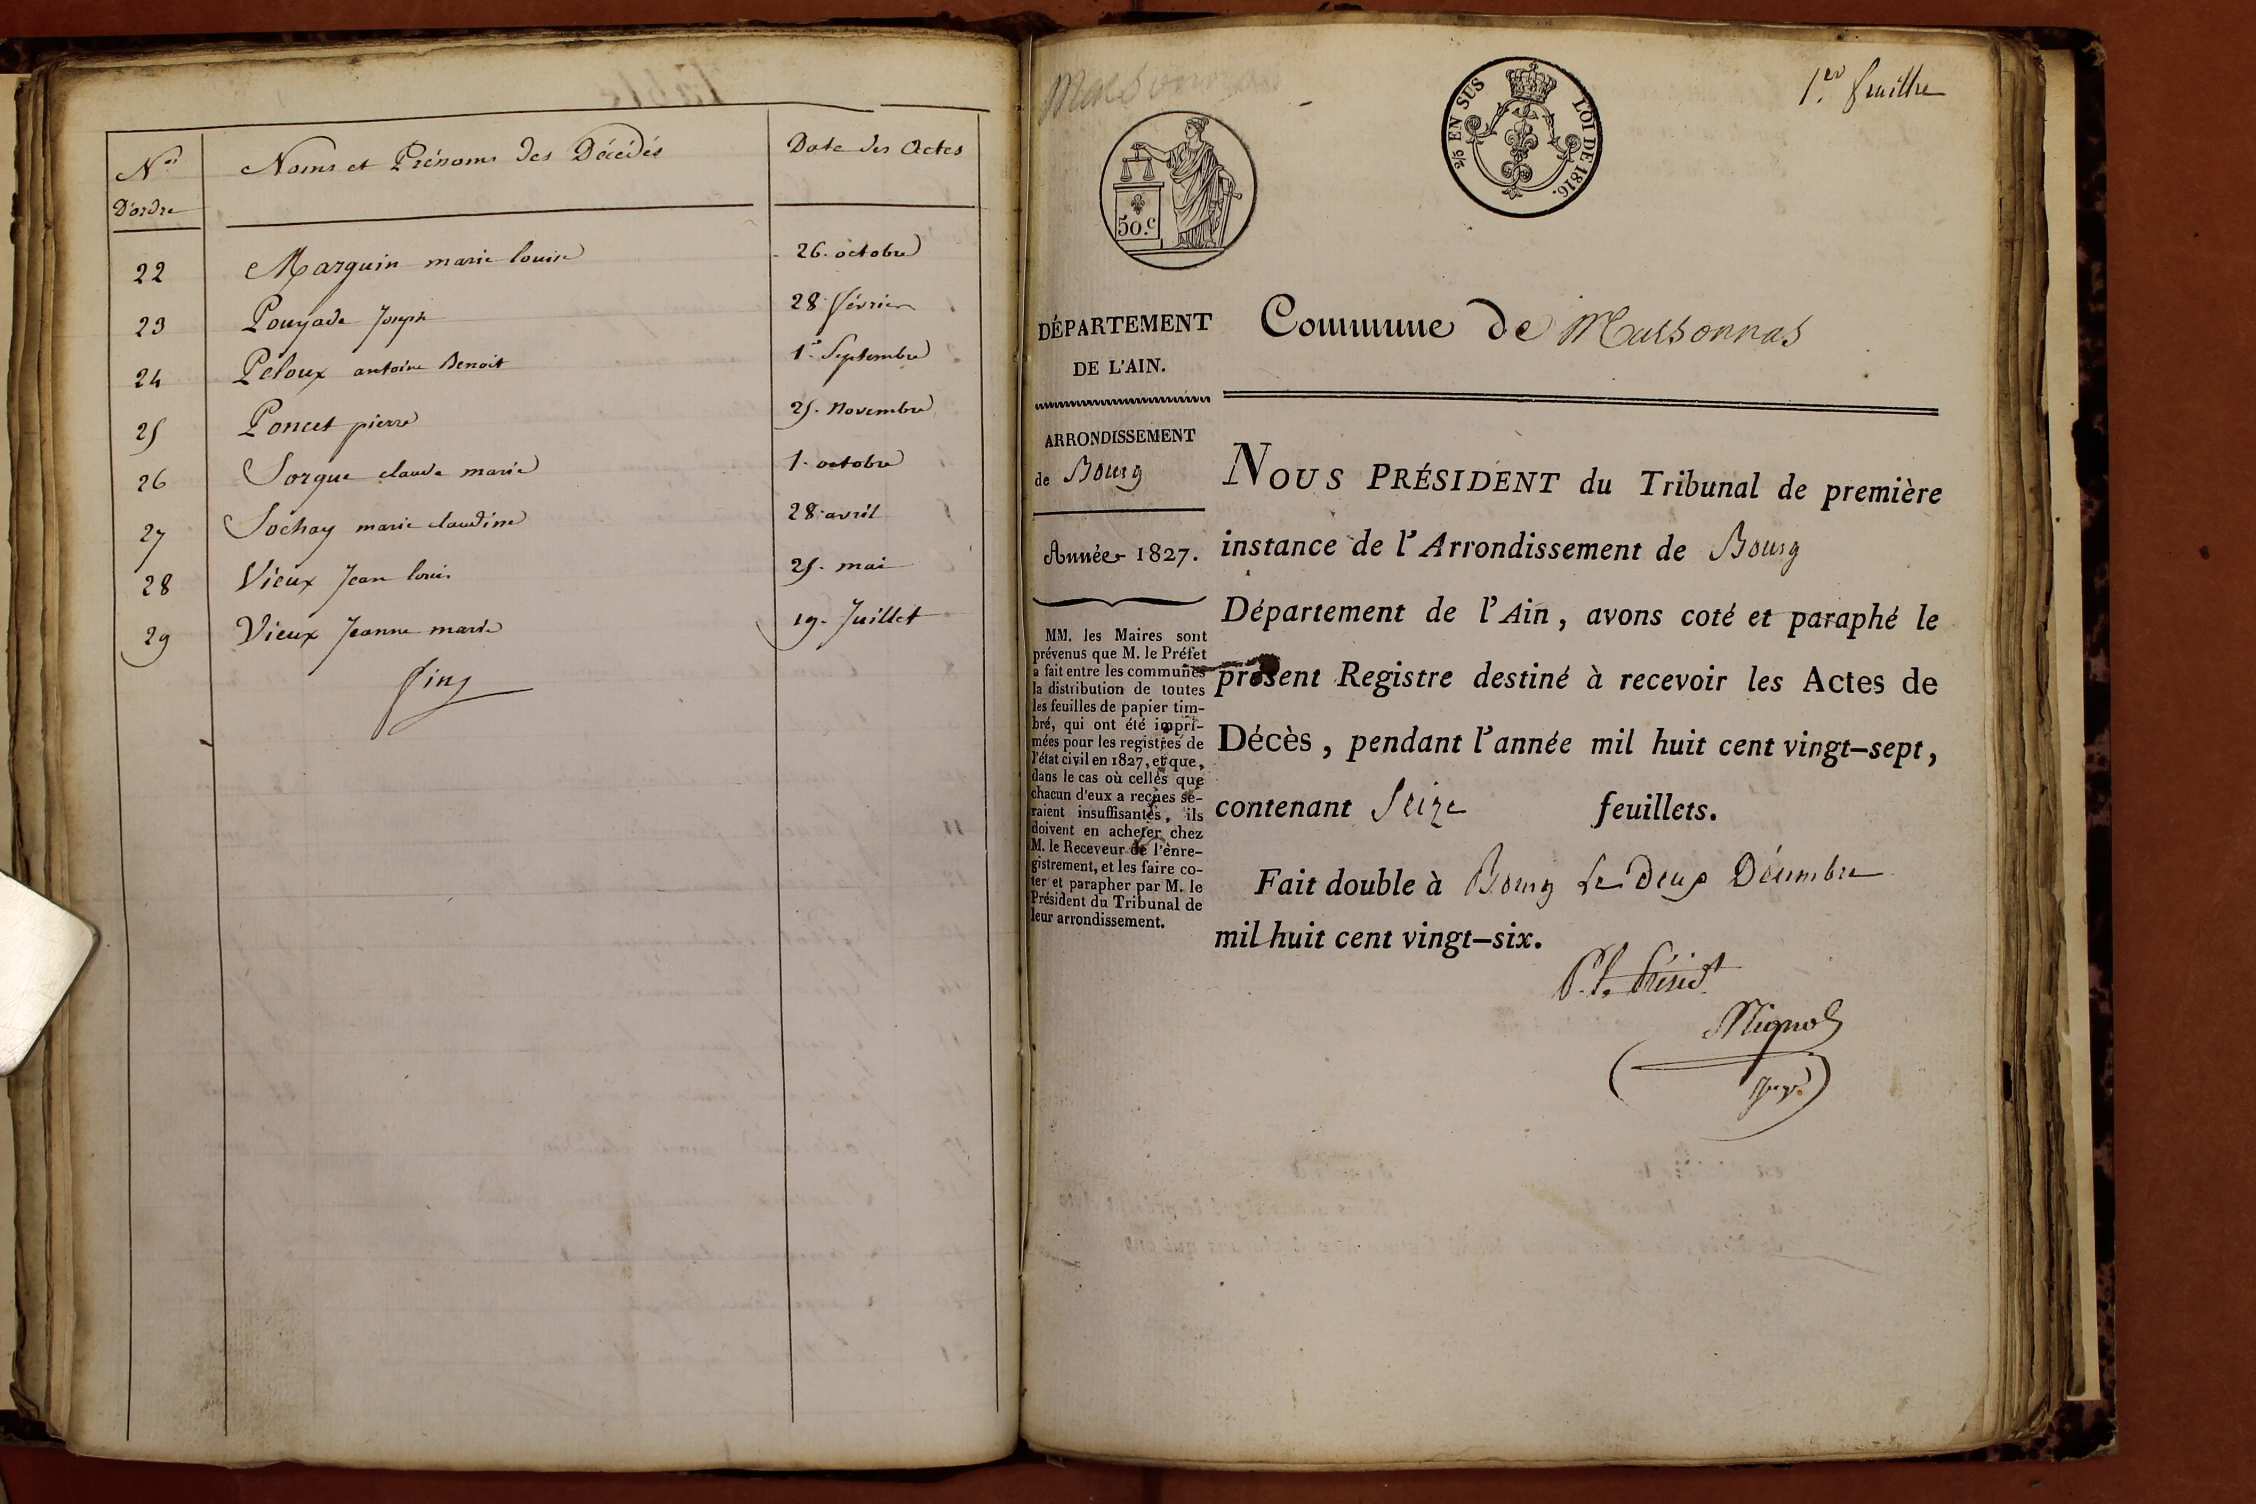 Nos D'ordre | Noms et Prénoms des Décédés | Date des Actes
22 | Marguin marie louise | 26. octobre
23 | Pouyade Joseph | 28 février
24 | Peloux antoine Benoit | 1er Septembre
25 | Poncet pierre | 25. Novembre
26 | Sorgue claude marie | 1. octobre
27 | Sochay marie claudine | 28 avril
28 | Vieux Jean louis | 25. mai
29 | Vieux Jeanne marie | 19. Juillet
fin
Marsonnas
1er feuillet
50.c
2/5 EN SUS LOI DE 1816.
DÉPARTEMENT
DE L'AIN.
ARRONDISSEMENT
de Bourg
Année 1827.
MM. les Maires sont
prévenus que M. le Préfet
a fait entre les communes
la distribution de toutes
les feuilles de papier tim-
bré, qui ont été impri-
mées pour les registres de
l'état civil en 1827, et que,
dans le cas où celles que
chacun d'eux a reçues se-
raient insuffisantes, ils
doivent en acheter chez
M. le Receveur de l'enre-
gistrement, et les faire co-
ter et parapher par M. le
Président du Tribunal de
leur arrondissement.
Commune de Marsonnas
NOUS PRÉSIDENT du Tribunal de première
instance de l'Arrondissement de Bourg
Département de l'Ain, avons coté et paraphé le
présent Registre destiné à recevoir les Actes de
Décès, pendant l'année mil huit cent vingt-sept,
contenant Seize feuillets.
Fait double à Bourg le deux Décembre
mil huit cent vingt-six.
P. le Présidt
Juge